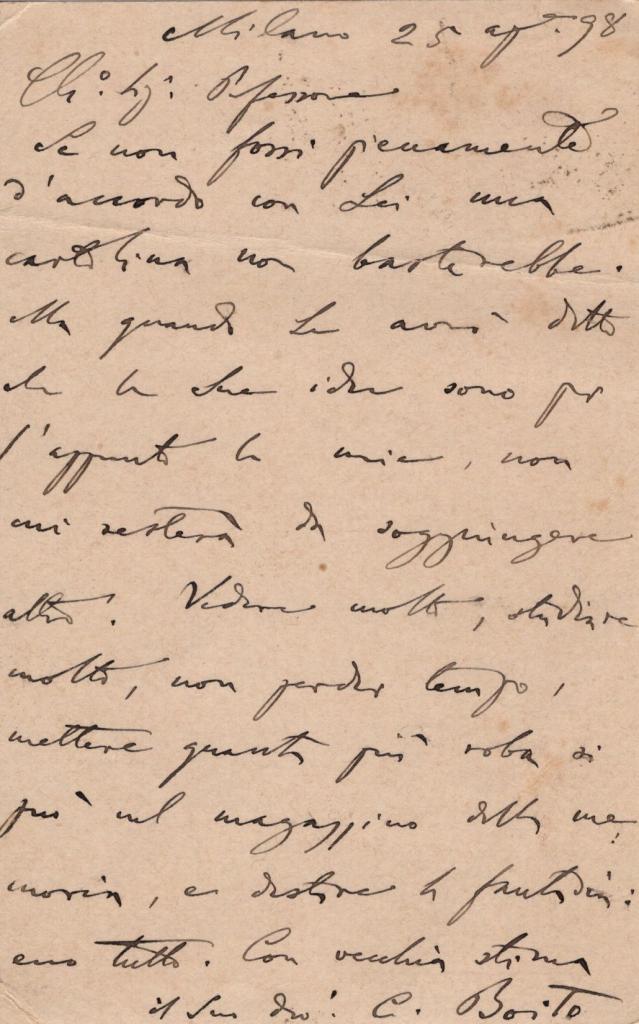 Milano 25 apr. 98
Ch.º Sig.r Professore
Se non fossi pienamente
d'accordo con Lei una
cartolina non basterebbe.
Ma quando Le avrò detto
che le Sue idee sono per
l'appunto le mie, non
mi resterà da soggiungere
altro. Vedere molto, studiare
molto, non perder tempo,
mettere quanta più roba si
può nel magazzino della me
moria, e destare la fantasia:
ecco tutto. Con vecchia stima
il Suo dev.º C. Boito